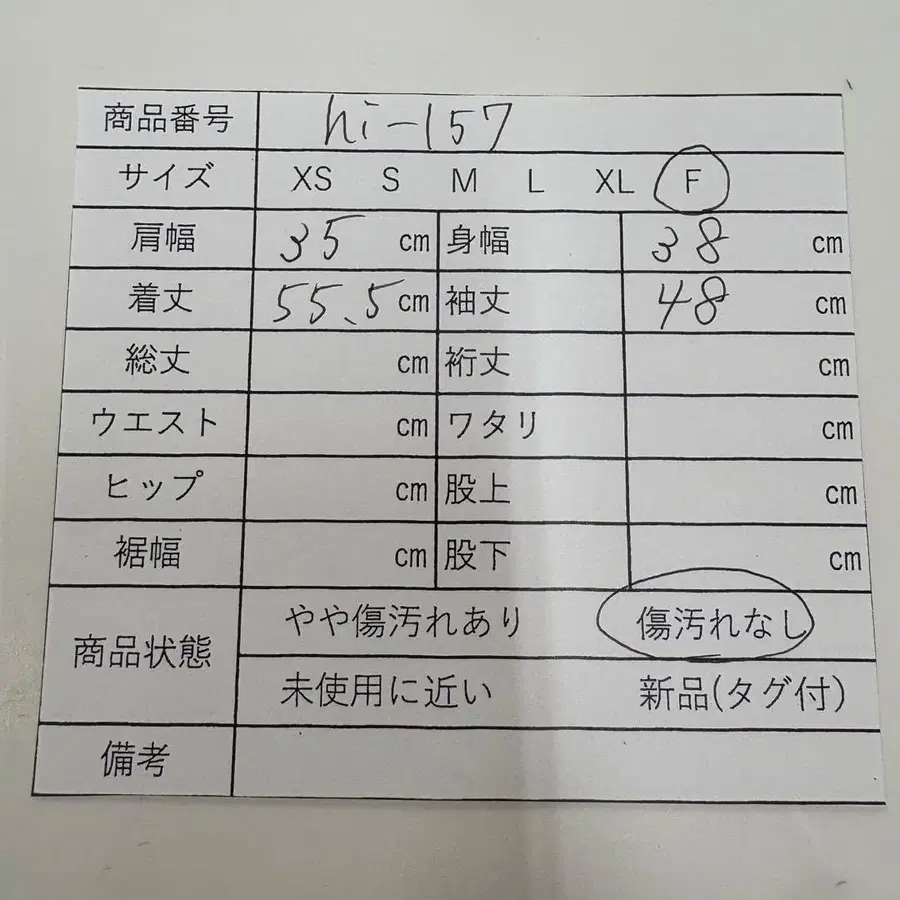 商品番号 hi-157
サイズ XS S M L XL F
肩幅 35 cm 身幅 38 cm
着丈 55.5 cm 袖丈 48 cm
総丈 cm 裄丈 cm
ウエスト cm ワタリ cm
ヒップ cm 股上 cm
裾幅 cm 股下 cm
商品状態 やや傷汚れあり 傷汚れなし
未使用に近い 新品(タグ付)
備考